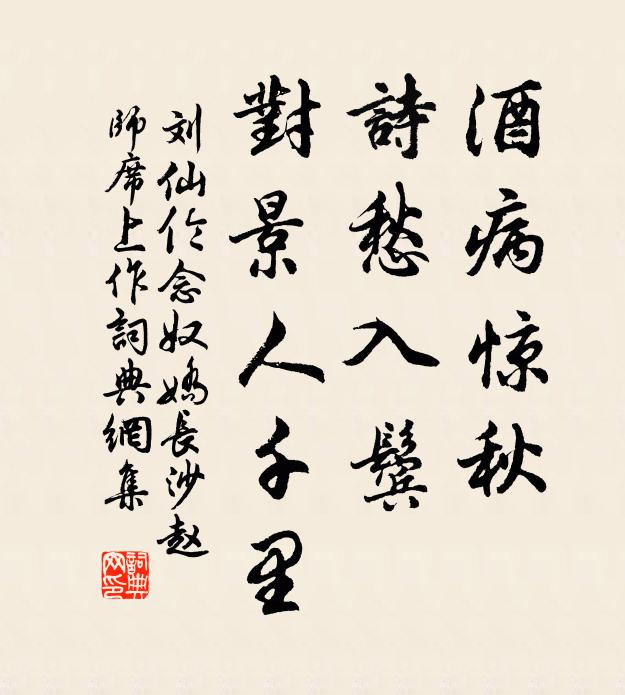 酒病惊秋
詩愁入鬓
對景人千里
刘仙伦念奴嬌長沙赵
師席上作詞典網集
詞典
网印